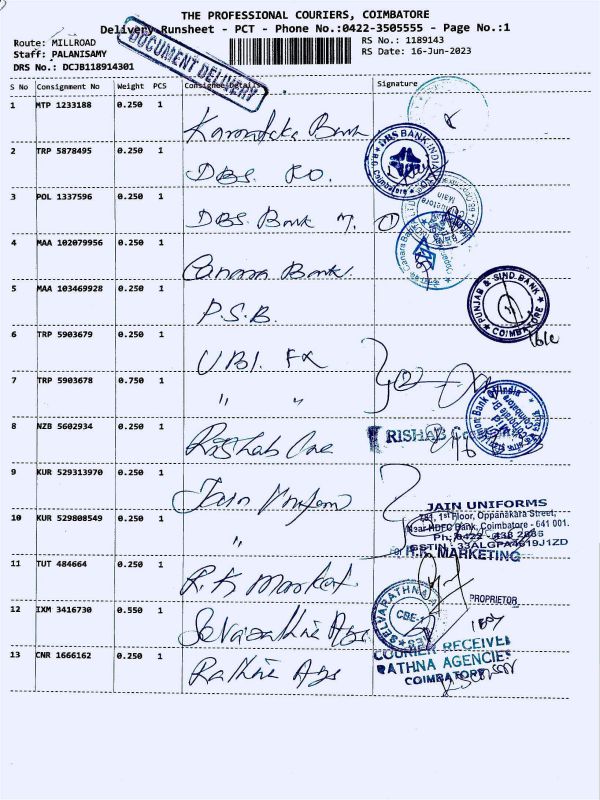 THE PROFESSIONAL COURIERS, COIMBATORE
Delivery Runsheet - PCT - Phone No.:0422-3505555 - Page No.:1
Route: MILLROAD
RS No.: 1189143
Staff: PALANISAMY
RS Date: 16-Jun-2023
DRS No.: DCJB118914301
DOCUMENT DELIVERY
S No Consignment No Weight PCS Consignee Details Signature
1 MTP 1233188 0.250 1 Karnataka Bank
2 TRP 5878495 0.250 1 DBS. RO.
DBS BANK INDIA
3 POL 1337596 0.250 1 DBS Bank M. O
Main
4 MAA 102079956 0.250 1 Canara Bank.
Canara Bank
5 MAA 103469928 0.250 1 P.S.B.
PUNJAB & SIND BANK
COIMBATORE
6 TRP 5903679 0.250 1 UBI. FX
7 TRP 5903678 0.750 1 " "
Union Bank of India
8 NZB 5602934 0.250 1 Rishab One
RISHAB
9 KUR 529313970 0.250 1 Jain Uniform
JAIN UNIFORMS
1st Floor, Oppanakara Street,
Near HDFC Bank, Coimbatore - 641 001.
10 KUR 529808549 0.250 1 "
R.K. MARKETING
11 TUT 484664 0.250 1 R.K Market
PROPRIETOR
12 IXM 3416730 0.550 1 Selvarathna Ags
SELVARATHNA
CBE-1
COURIER RECEIVED
13 CNR 1666162 0.250 1 Rathna Ags
RATHNA AGENCIES
COIMBATORE